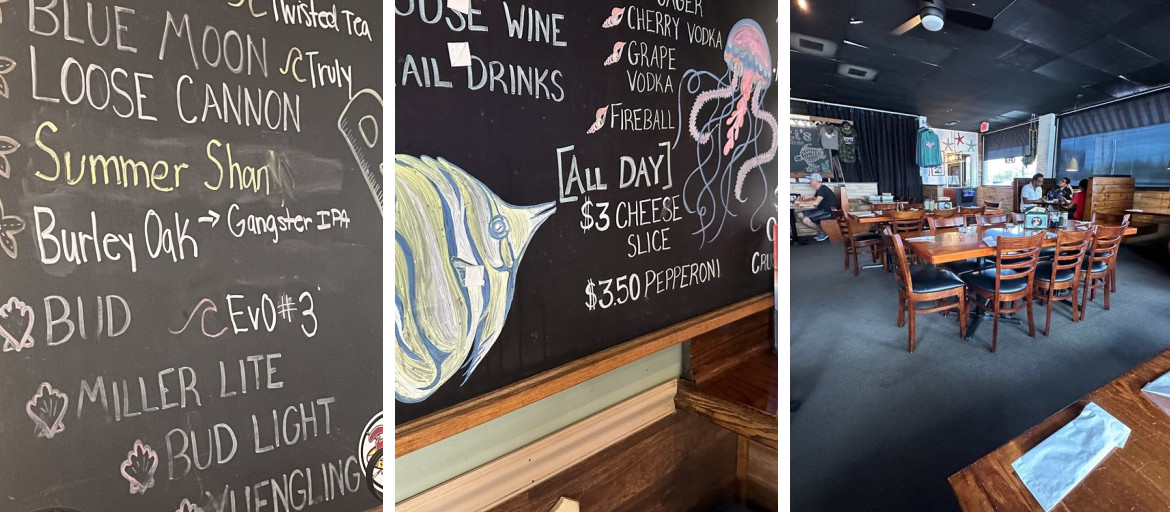 Twisted Tea
BLUE MOON
Truly
LOOSE CANNON
Summer Shan
Burley Oak → Gangster IPA
BUD
EVO#3
MILLER LITE
BUD LIGHT
YUENGLING
WINE
DRINKS
CHERRY VODKA
GRAPE
VODKA
FIREBALL
[ALL DAY]
$3 CHEESE
SLICE
$3.50 PEPPERONI